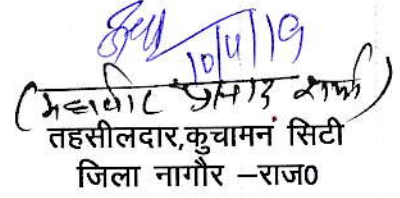 10/4/19
(महावीर प्रसाद शर्मा)
तहसीलदार,कुचामन सिटी
जिला नागौर –राज0